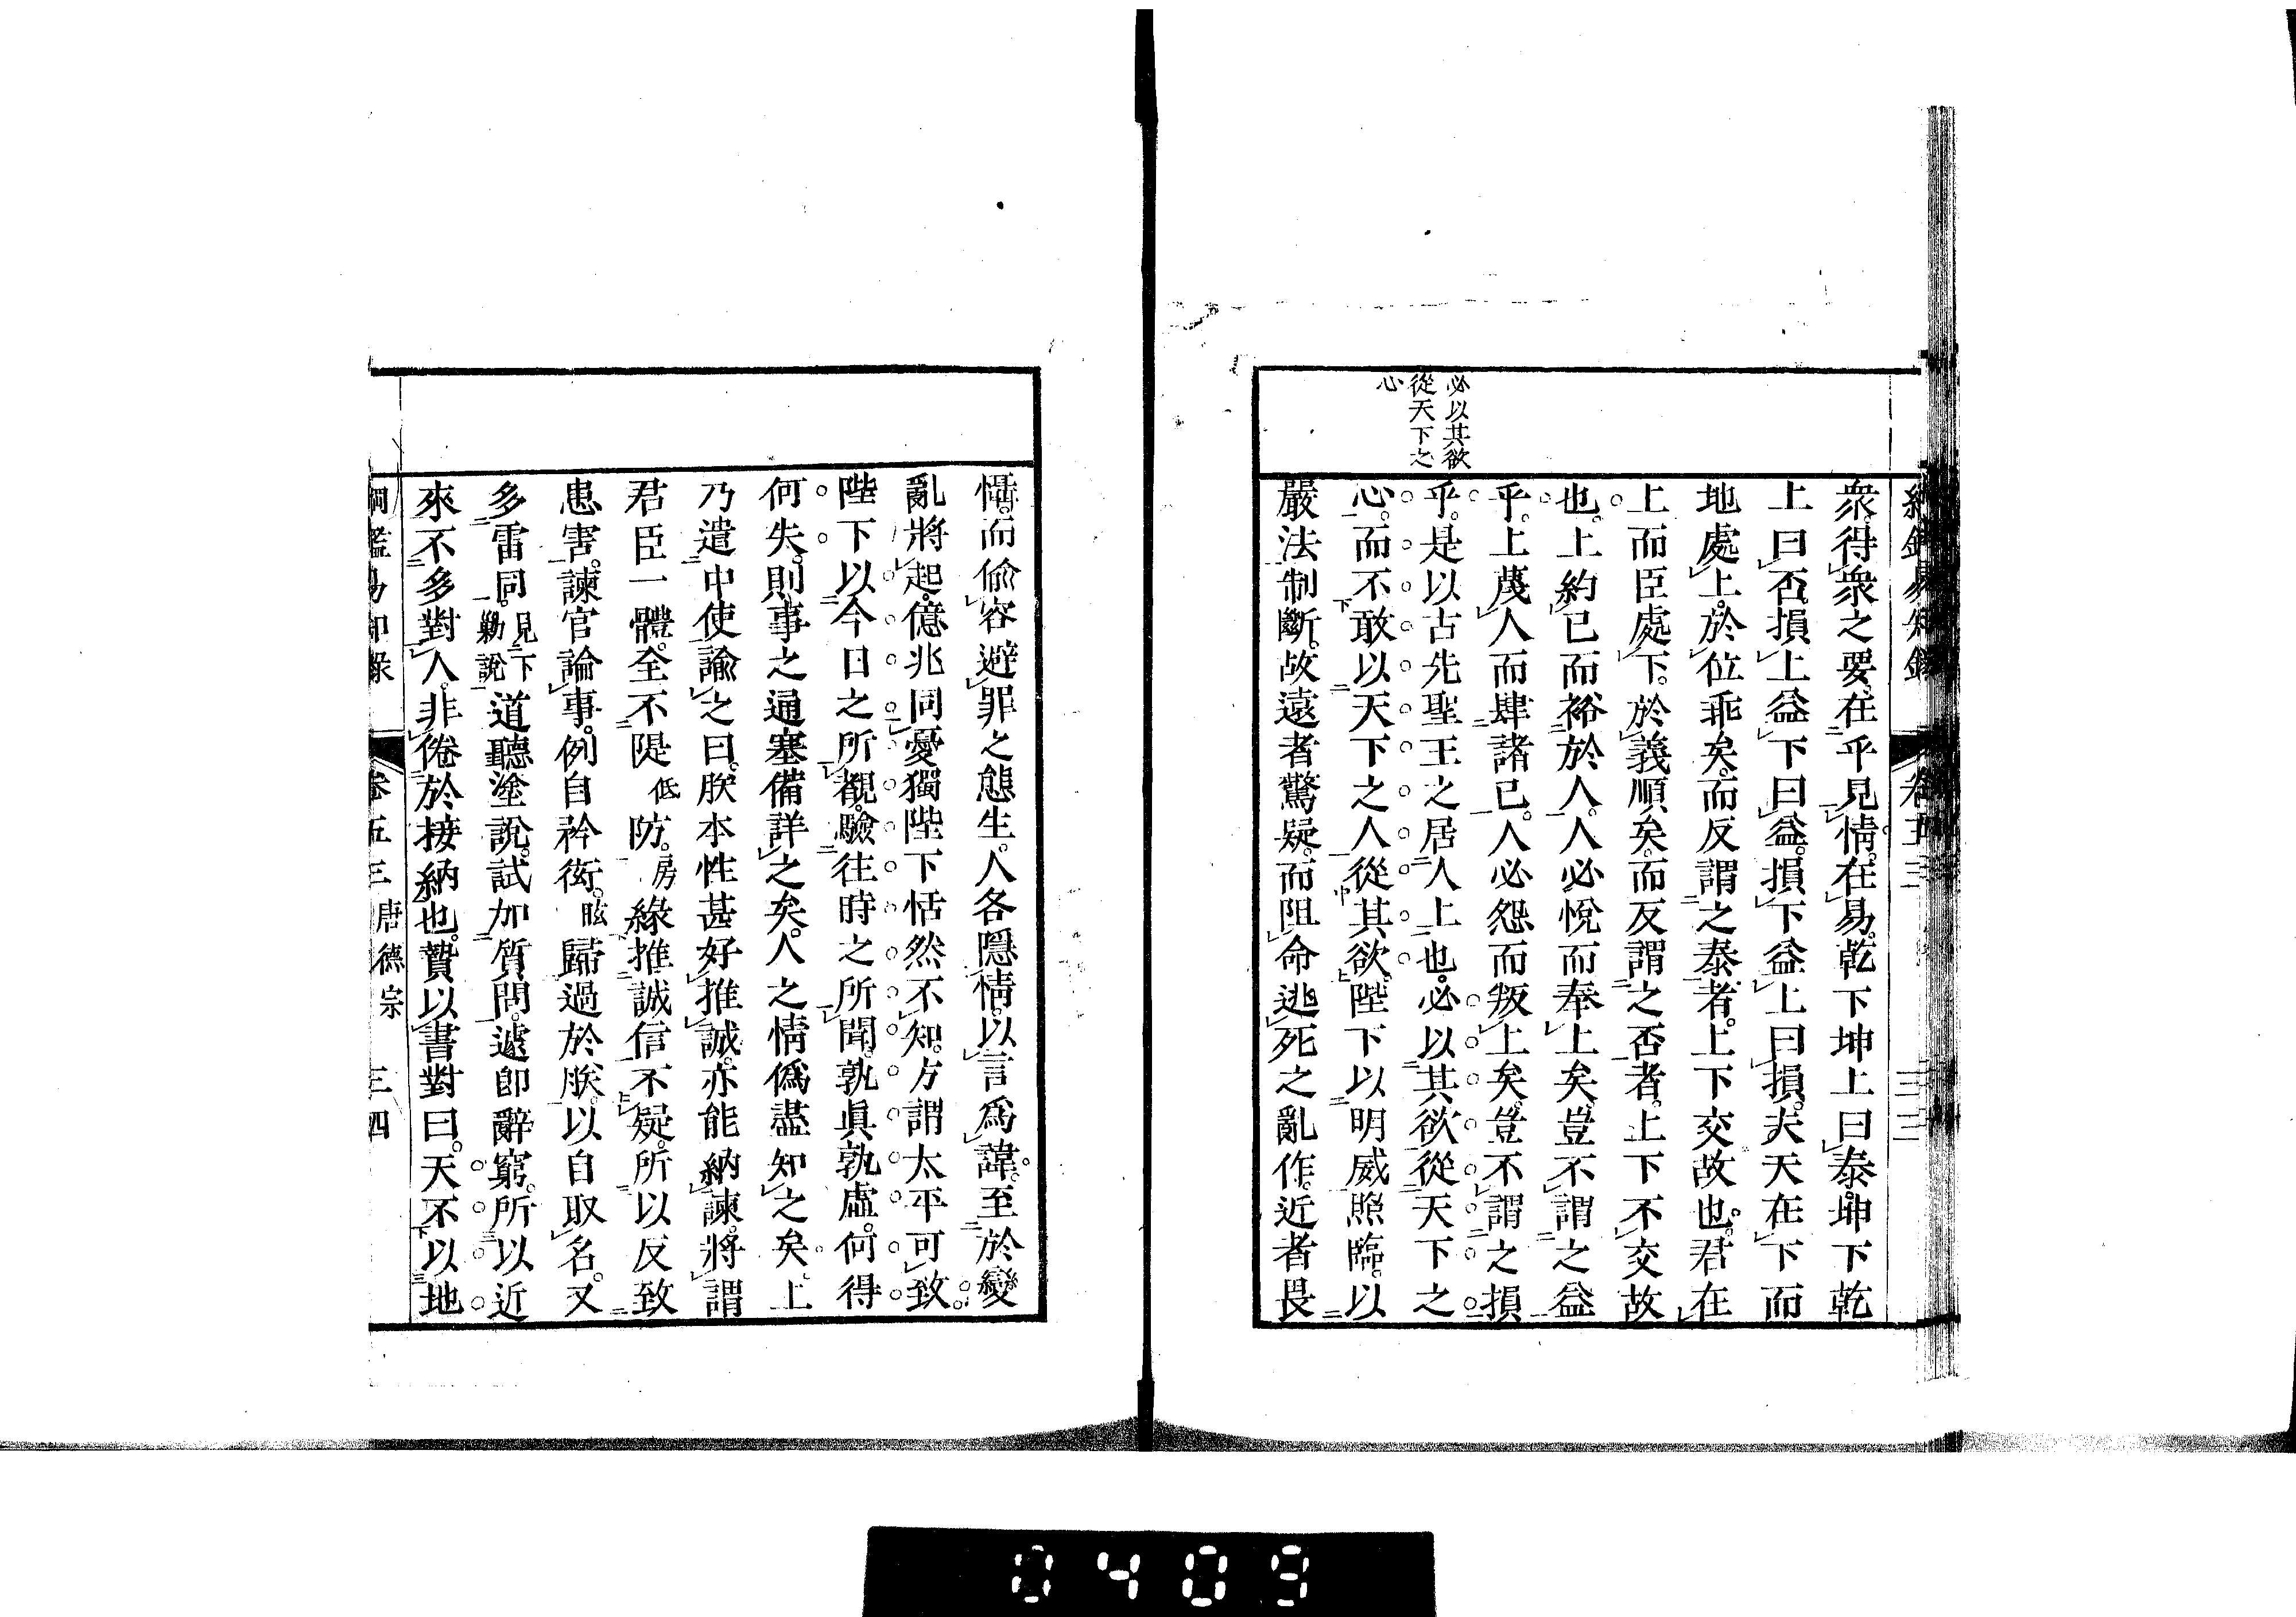 綱鑑易知錄 卷五三
衆。得衆之要。在乎見情。在易。乾下坤上曰泰。坤下乾
上曰否。損上益下曰益。損下益上曰損。夫天在下而
地處上。於位乖矣。而反謂之泰者。上下交故也。君在
上而臣處下。於義順矣。而反謂之否者。上下不交故
也。上約已而裕於人。人必悅而奉上矣。豈不謂之益
乎。上蔑人而肆諸已。人必怨而叛上矣。豈不謂之損
乎。是以古先聖王之居人上也。必以其欲從天下之
心。而不敢以天下之人從其欲。陛下以明威照臨。以
嚴法制斷。故遠者驚疑。而阻命逃死之亂作。近者畏
必以其欲
從天下之
心
懾。而偸容避罪之態生。人各隱情。以言爲諱。至於變
亂將起。億兆同憂。獨陛下恬然不知。方謂太平可致。
陛下以今日之所覩。驗往時之所聞。孰眞孰虛。何得
何失。則事之通塞備詳之矣。人之情僞盡知之矣。上
乃遣中使諭之曰。朕本性甚好推誠。亦能納諫。將謂
君臣一體。全不隄低防。房緣推誠信不疑。所以反致
患害。諫官論事。例自矜衒。眩歸過於朕。以自取名。又
多雷同。勦說見下道聽塗說。試加質問。遽卽辭窮。所以近
來不多對人。非倦於接納也。贄以書對曰。天不以地
綱鑑易知錄 卷五三 唐德宗 三四
0409